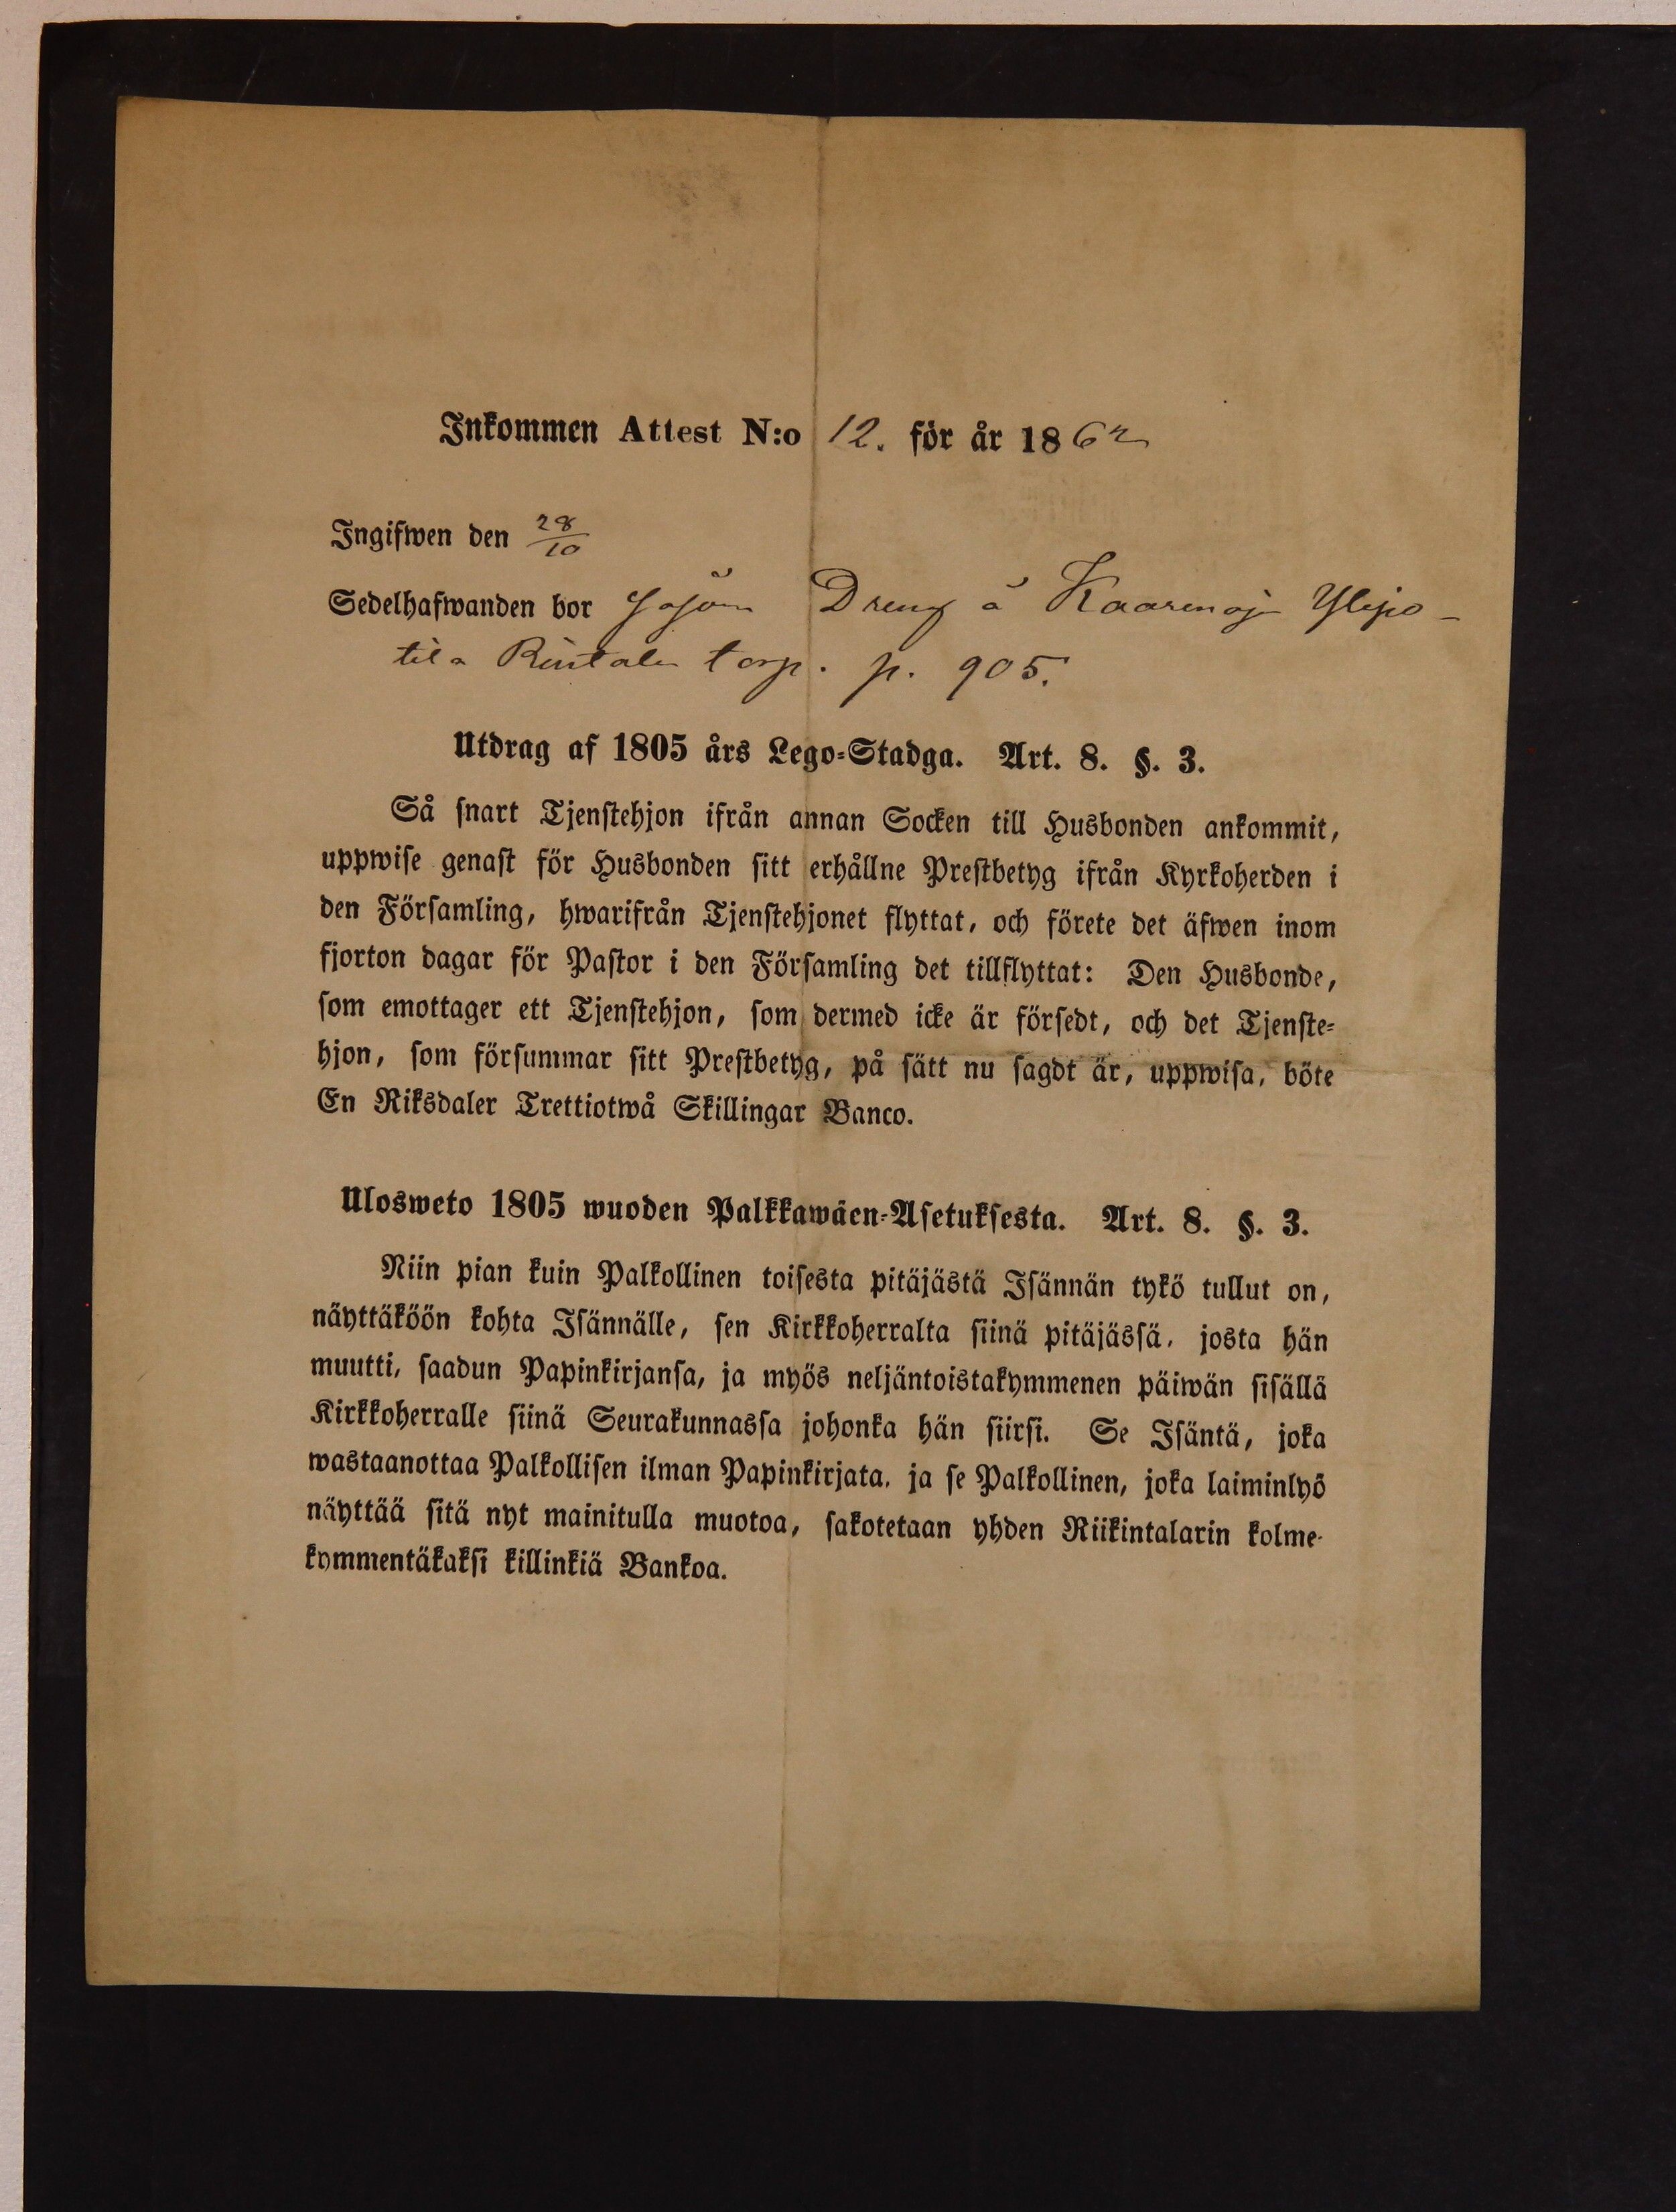 Inkommen Attest N:o 12. för år 1862
Ingifwen den 28/10
Sedelhafwanden bor såsom Dreng å Kaarenoja Ylipo-
tila Rintala torp. p. 905.
Utdrag af 1805 års Lego-Stadga. Art. 8. §. 3.
Så snart Tjenstehjon ifrån annan Socken till Husbonden ankommit,
uppwise genast för Husbonden sitt erhållne Prestbetyg ifrån Kyrkoherden i
den Församling, hwarifrån Tjenstehjonet flyttat, och förete det äfwen inom
fjorton dagar för Pastor i den Församling det tillflyttat: Den Husbonde,
som emottager ett Tjenstehjon, som dermed icke är försedt, och det Tjenste-
hjon, som försummar sitt Prestbetyg, på sätt nu sagdt är, uppwisa, böte
En Riksdaler Trettiotwå Skillingar Banco.
Ulosweto 1805 wuoden Palkkawäen-Asetuksesta. Art. 8. §. 3.
Niin pian kuin Palkollinen toisesta pitäjästä Isännän tykö tullut on,
näyttäköön kohta Isännälle, sen Kirkkoherralta siinä pitäjässä, josta hän
muutti, saadun Papinkirjansa, ja myös neljäntoistakymmenen päiwän sisällä
Kirkkoherralle siinä Seurakunnassa johonka hän siirsi. Se Isäntä, joka
wastaanottaa Palkollisen ilman Papinkirjata, ja se Palkollinen, joka laiminlyö
näyttää sitä nyt mainitulla muotoa, sakotetaan yhden Riikintalarin kolme-
kymmentäkaksi killinkiä Bankoa.